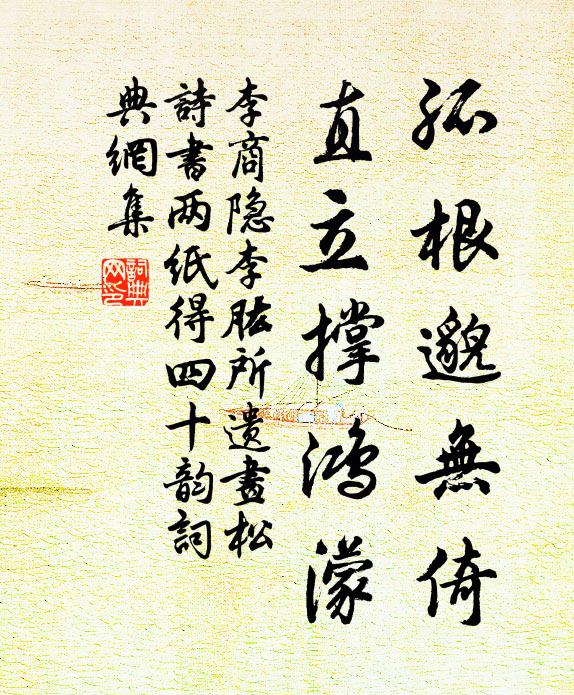 孤根邈無倚
直立撐鴻濛
李商隐李肱所遗畫松
詩書两紙得四十韵詞
典網集
詞典网印